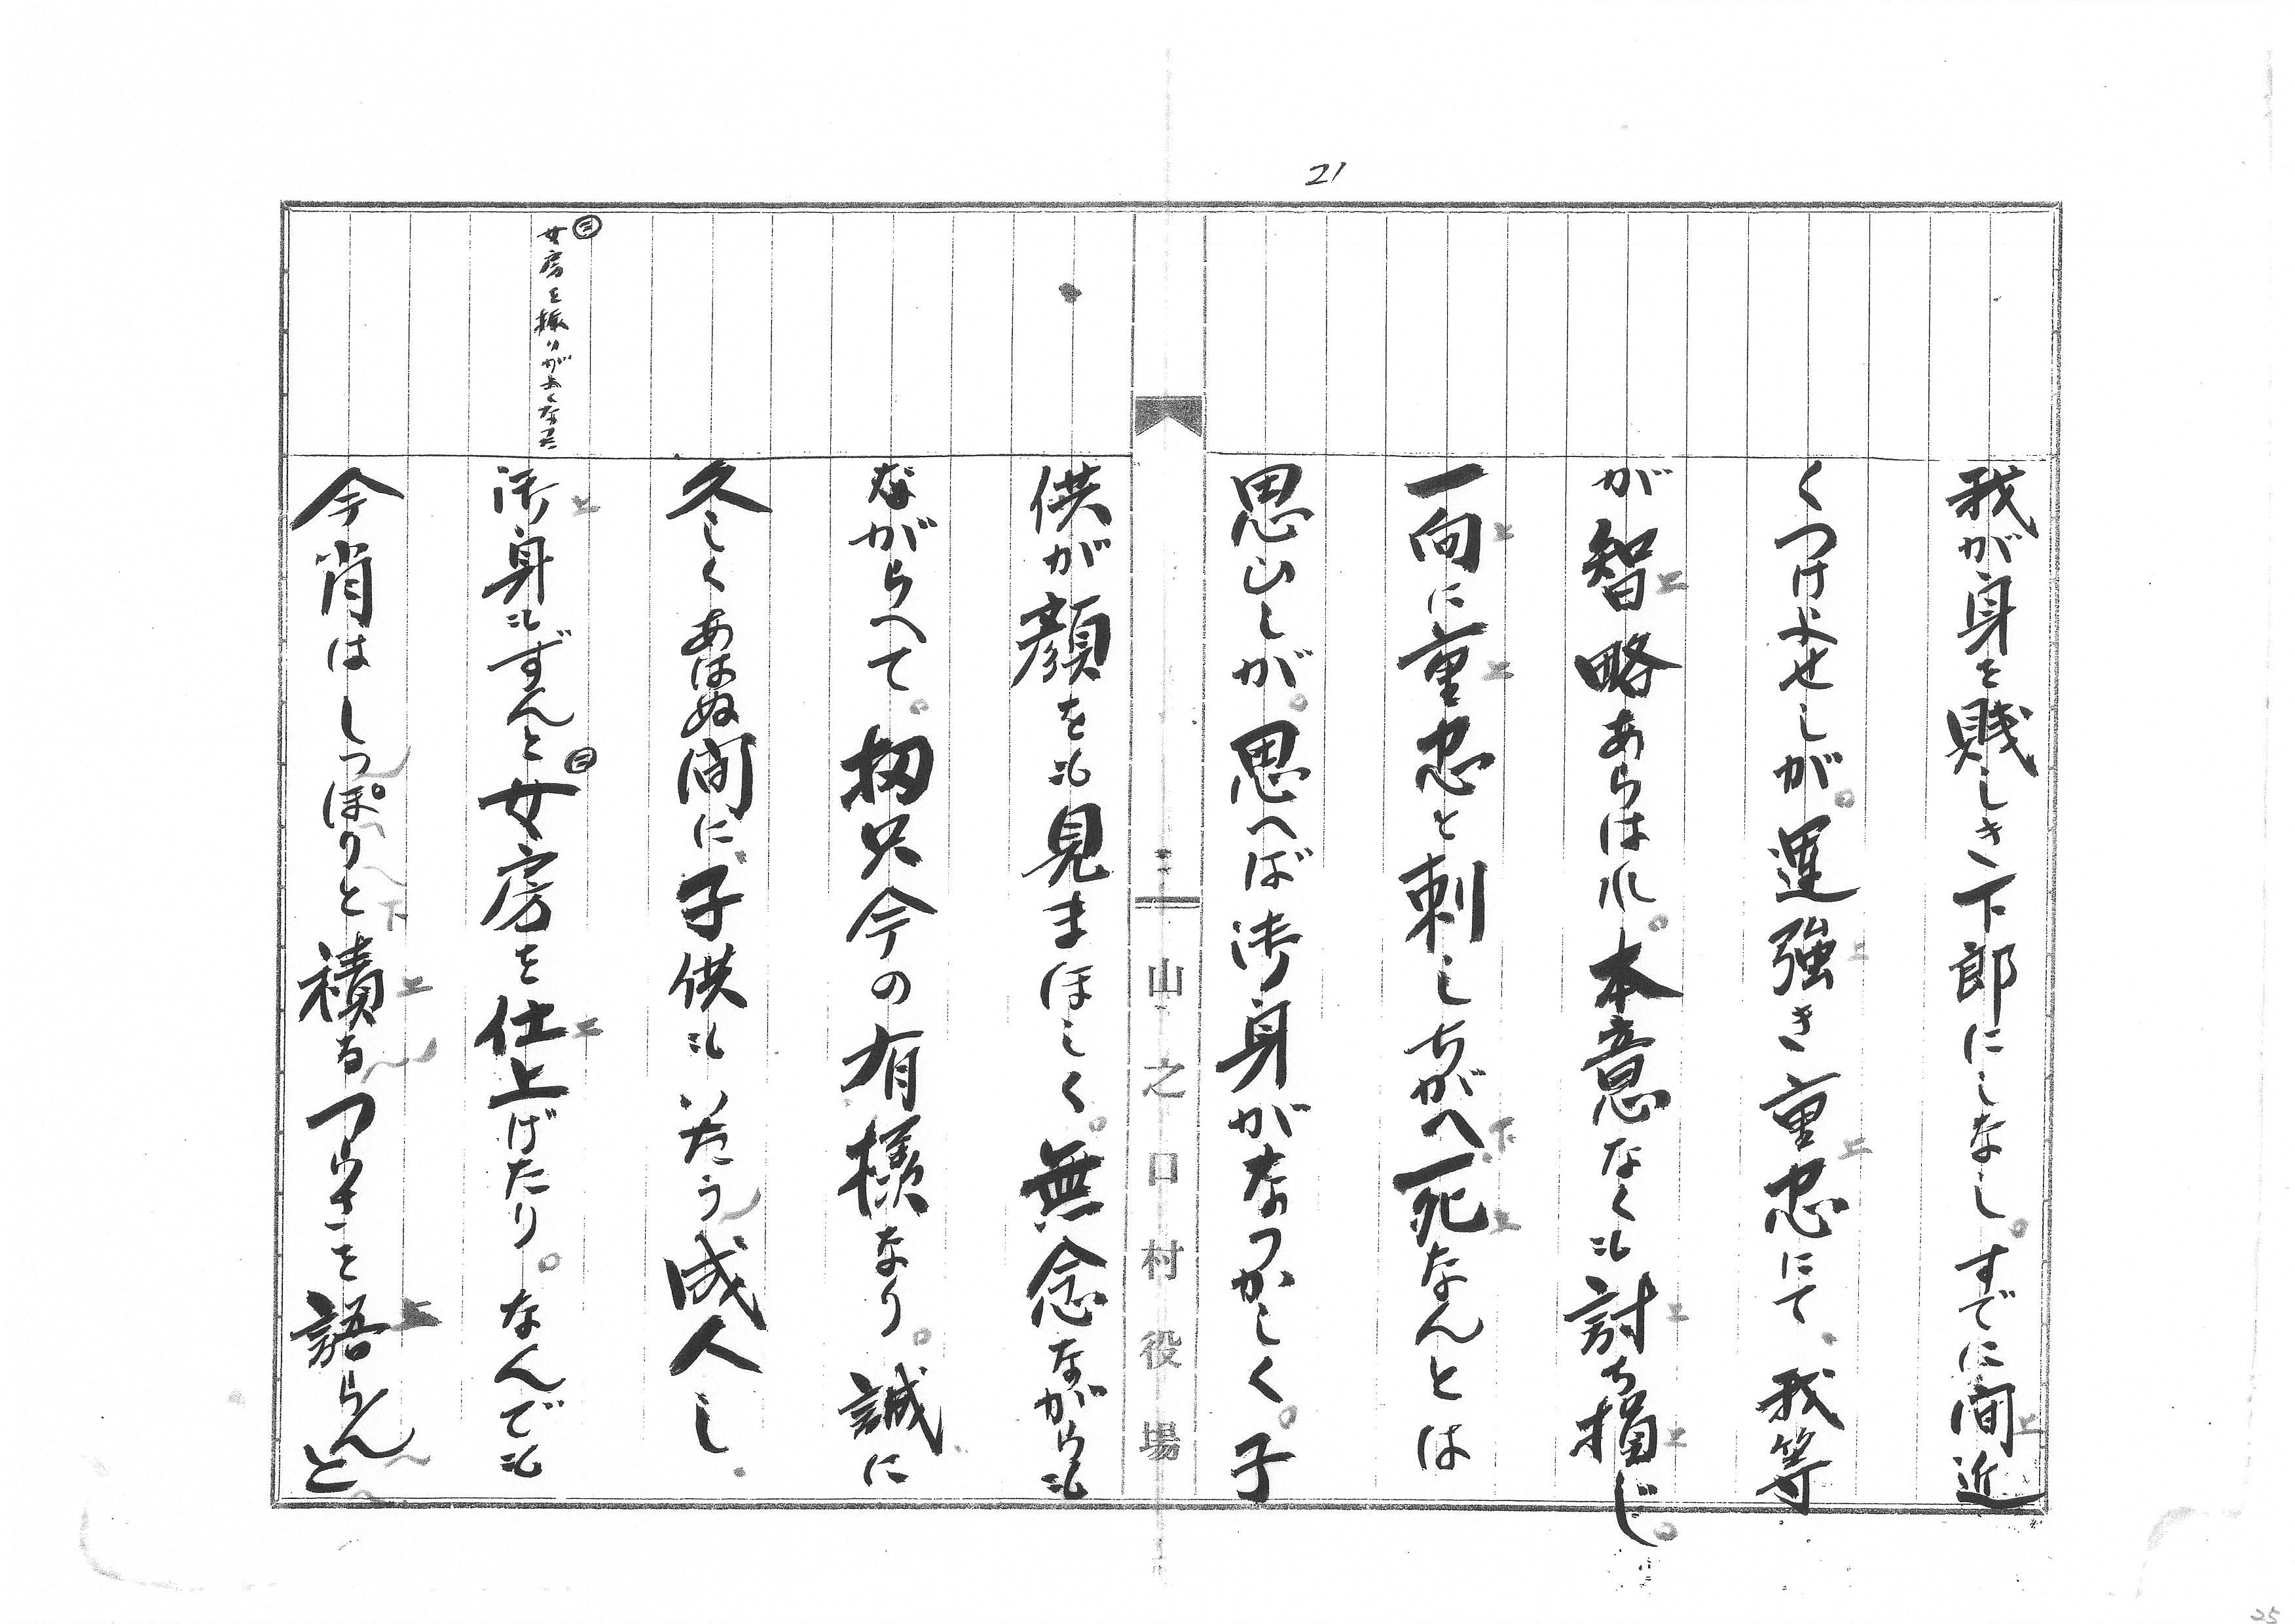 21
我が身を賎しき下郎にしなし。すでに間近
くつけよせしが。運強き重忠にて、我等
が智略あらはれ。本意なくも討ち損じ。
一向に重忠と刺しちがへ死なんとは
思ひしが。思へば御身がなつかしく。子
山之口村役場
供が顔をも見まほしく。無念ながらも
ながらへて。扨只今の有様なり。誠に
久しくあはぬ間に、子供もいたう成人し、
㊂女房を振りがよくなった
御身もずんと㊂女房を仕上げたり。なんでも
今宵はしっぽりと積るつらさを語らんと。
25